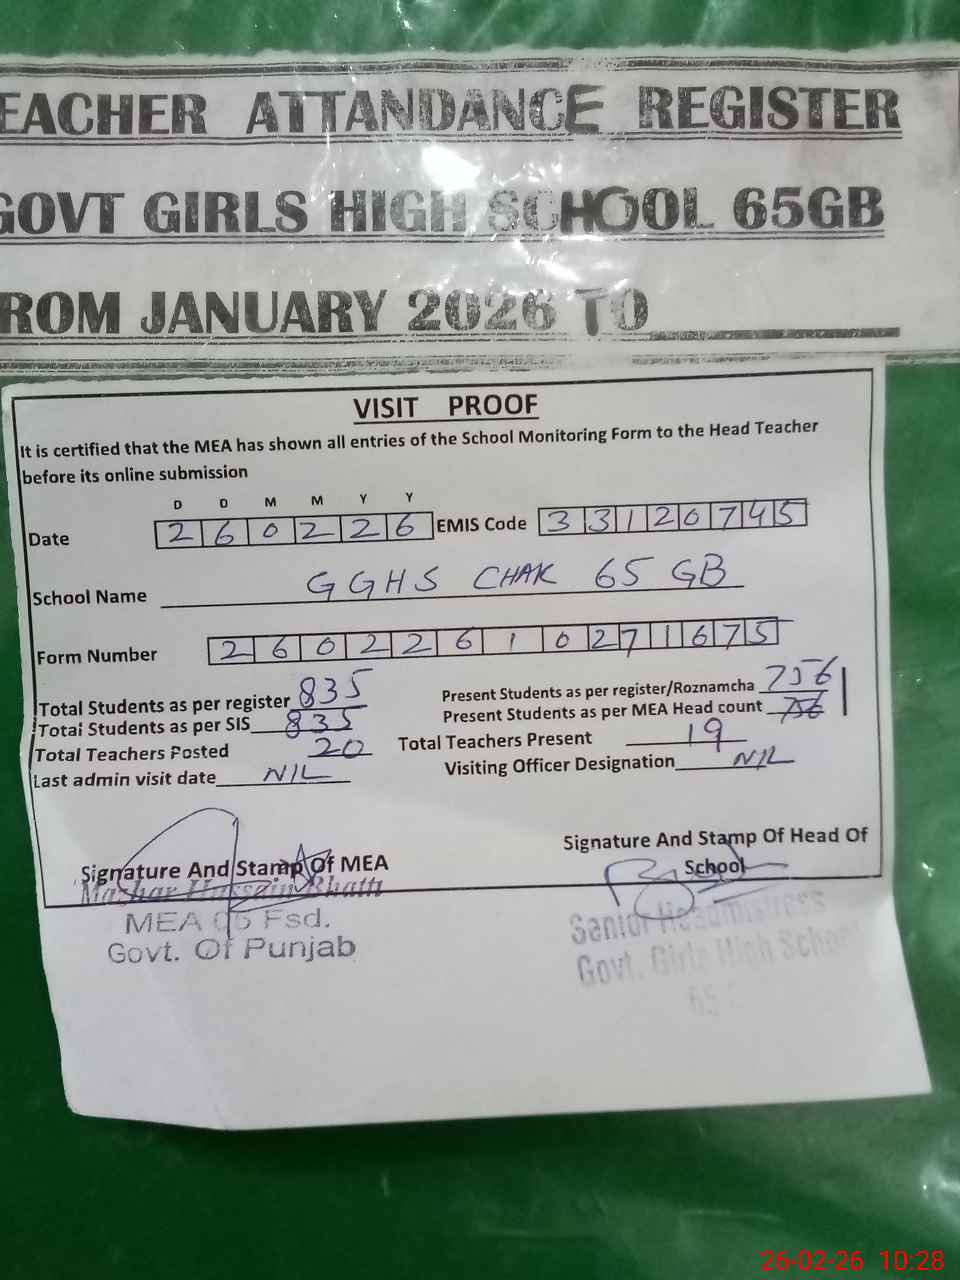 EACHER ATTANDANCE REGISTER
GOVT GIRLS HIGH SCHOOL 65GB
ROM JANUARY 2026 TO
VISIT PROOF
It is certified that the MEA has shown all entries of the School Monitoring Form to the Head Teacher
before its online submission
D D M M Y Y
Date 2 6 0 2 2 6 EMIS Code 3 3 1 2 0 7 4 5
School Name GGHS CHAK 65 GB
Form Number 2 6 0 2 2 6 1 0 2 7 1 6 7 5
Total Students as per register 835 Present Students as per register/Roznamcha 756
Total Students as per SIS 835 Present Students as per MEA Head count
Total Teachers Posted 20 Total Teachers Present 19
Last admin visit date NIL Visiting Officer Designation NIL
Signature And Stamp Of MEA Signature And Stamp Of Head Of
School
Mazhar Hussain Bhatti
MEA 05 Fsd.
Govt. Of Punjab
Senior Headmistress
Govt. Girls High School
65
26-02-26 10:28